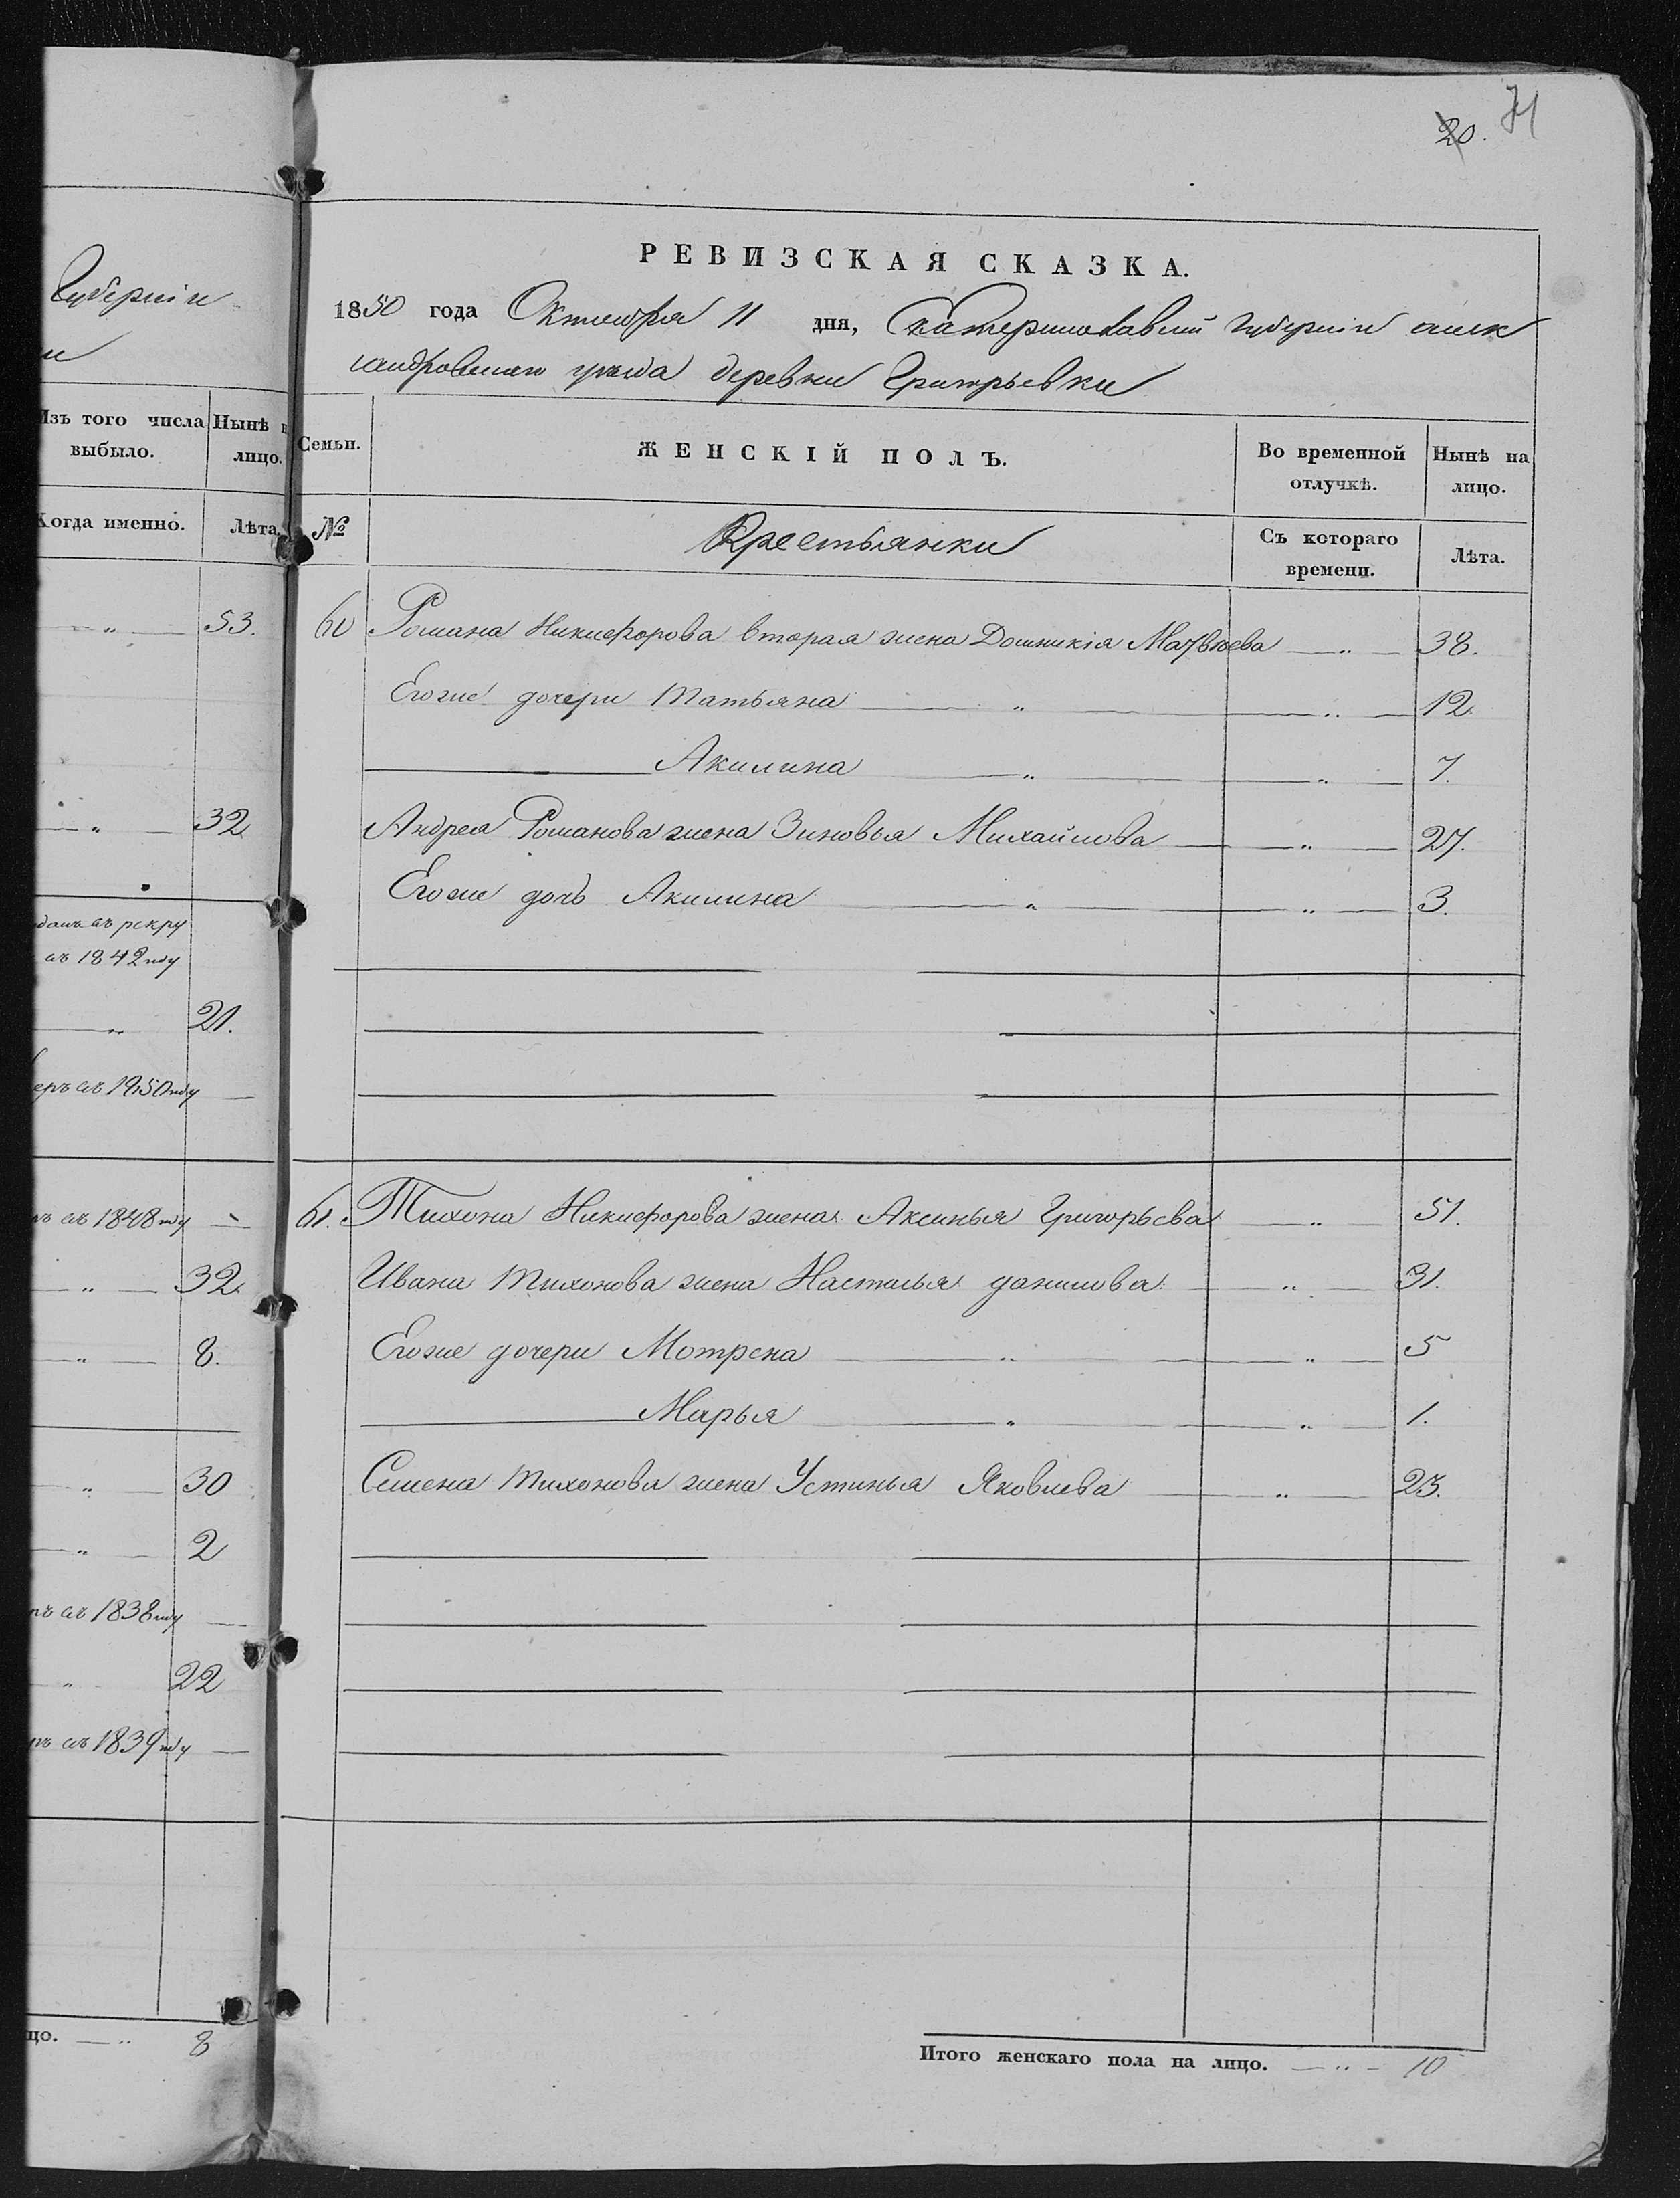 20. 71
Губерніи
и
Изъ того числа выбыло.
Нынѣ
лицо.
Когда именно.
Лѣта.
„ 53.
„ 32
въ рекру
въ 1842 году
„ 21.
въ 1850 году —
въ 1848 году —
„ 32.
„ 8.
„ 30
„ 2
въ 1838 году —
„ 22
въ 1839 году —
цо. — „ 8
РЕВИЗСКАЯ СКАЗКА.
1850 года Октября 11 дня, Екатеринославской губерніи алек
сандровскаго уѣзда деревни Григорьевки
Семьи.
ЖЕНСКІЙ ПОЛЪ.
Во временной отлучкѣ.
Нынѣ на лицо.
№
Крестьянки
Съ котораго времени.
Лѣта.
60 Романа Никифорова вторая жена Домникія Матвѣева — „ — 38.
Его же дочери Татьяна — „ — „ — 12.
Акилина — „ — „ — 7.
Андрея Романова жена Зиновья Михайлова — „ — 27.
Его же дочь Акилина — „ — „ — 3.
61. Тихона Никифорова жена Аксинья Григорьева — „ 51.
Ивана Тихонова жена Насталья данилова — „ — 31.
Его же дочери Мотрена — „ — „ — 5
Марья — „ — „ — 1.
Семена Тихонова жена Устинья Яковлева — „ — 23.
Итого женскаго пола на лицо. — „ — 10